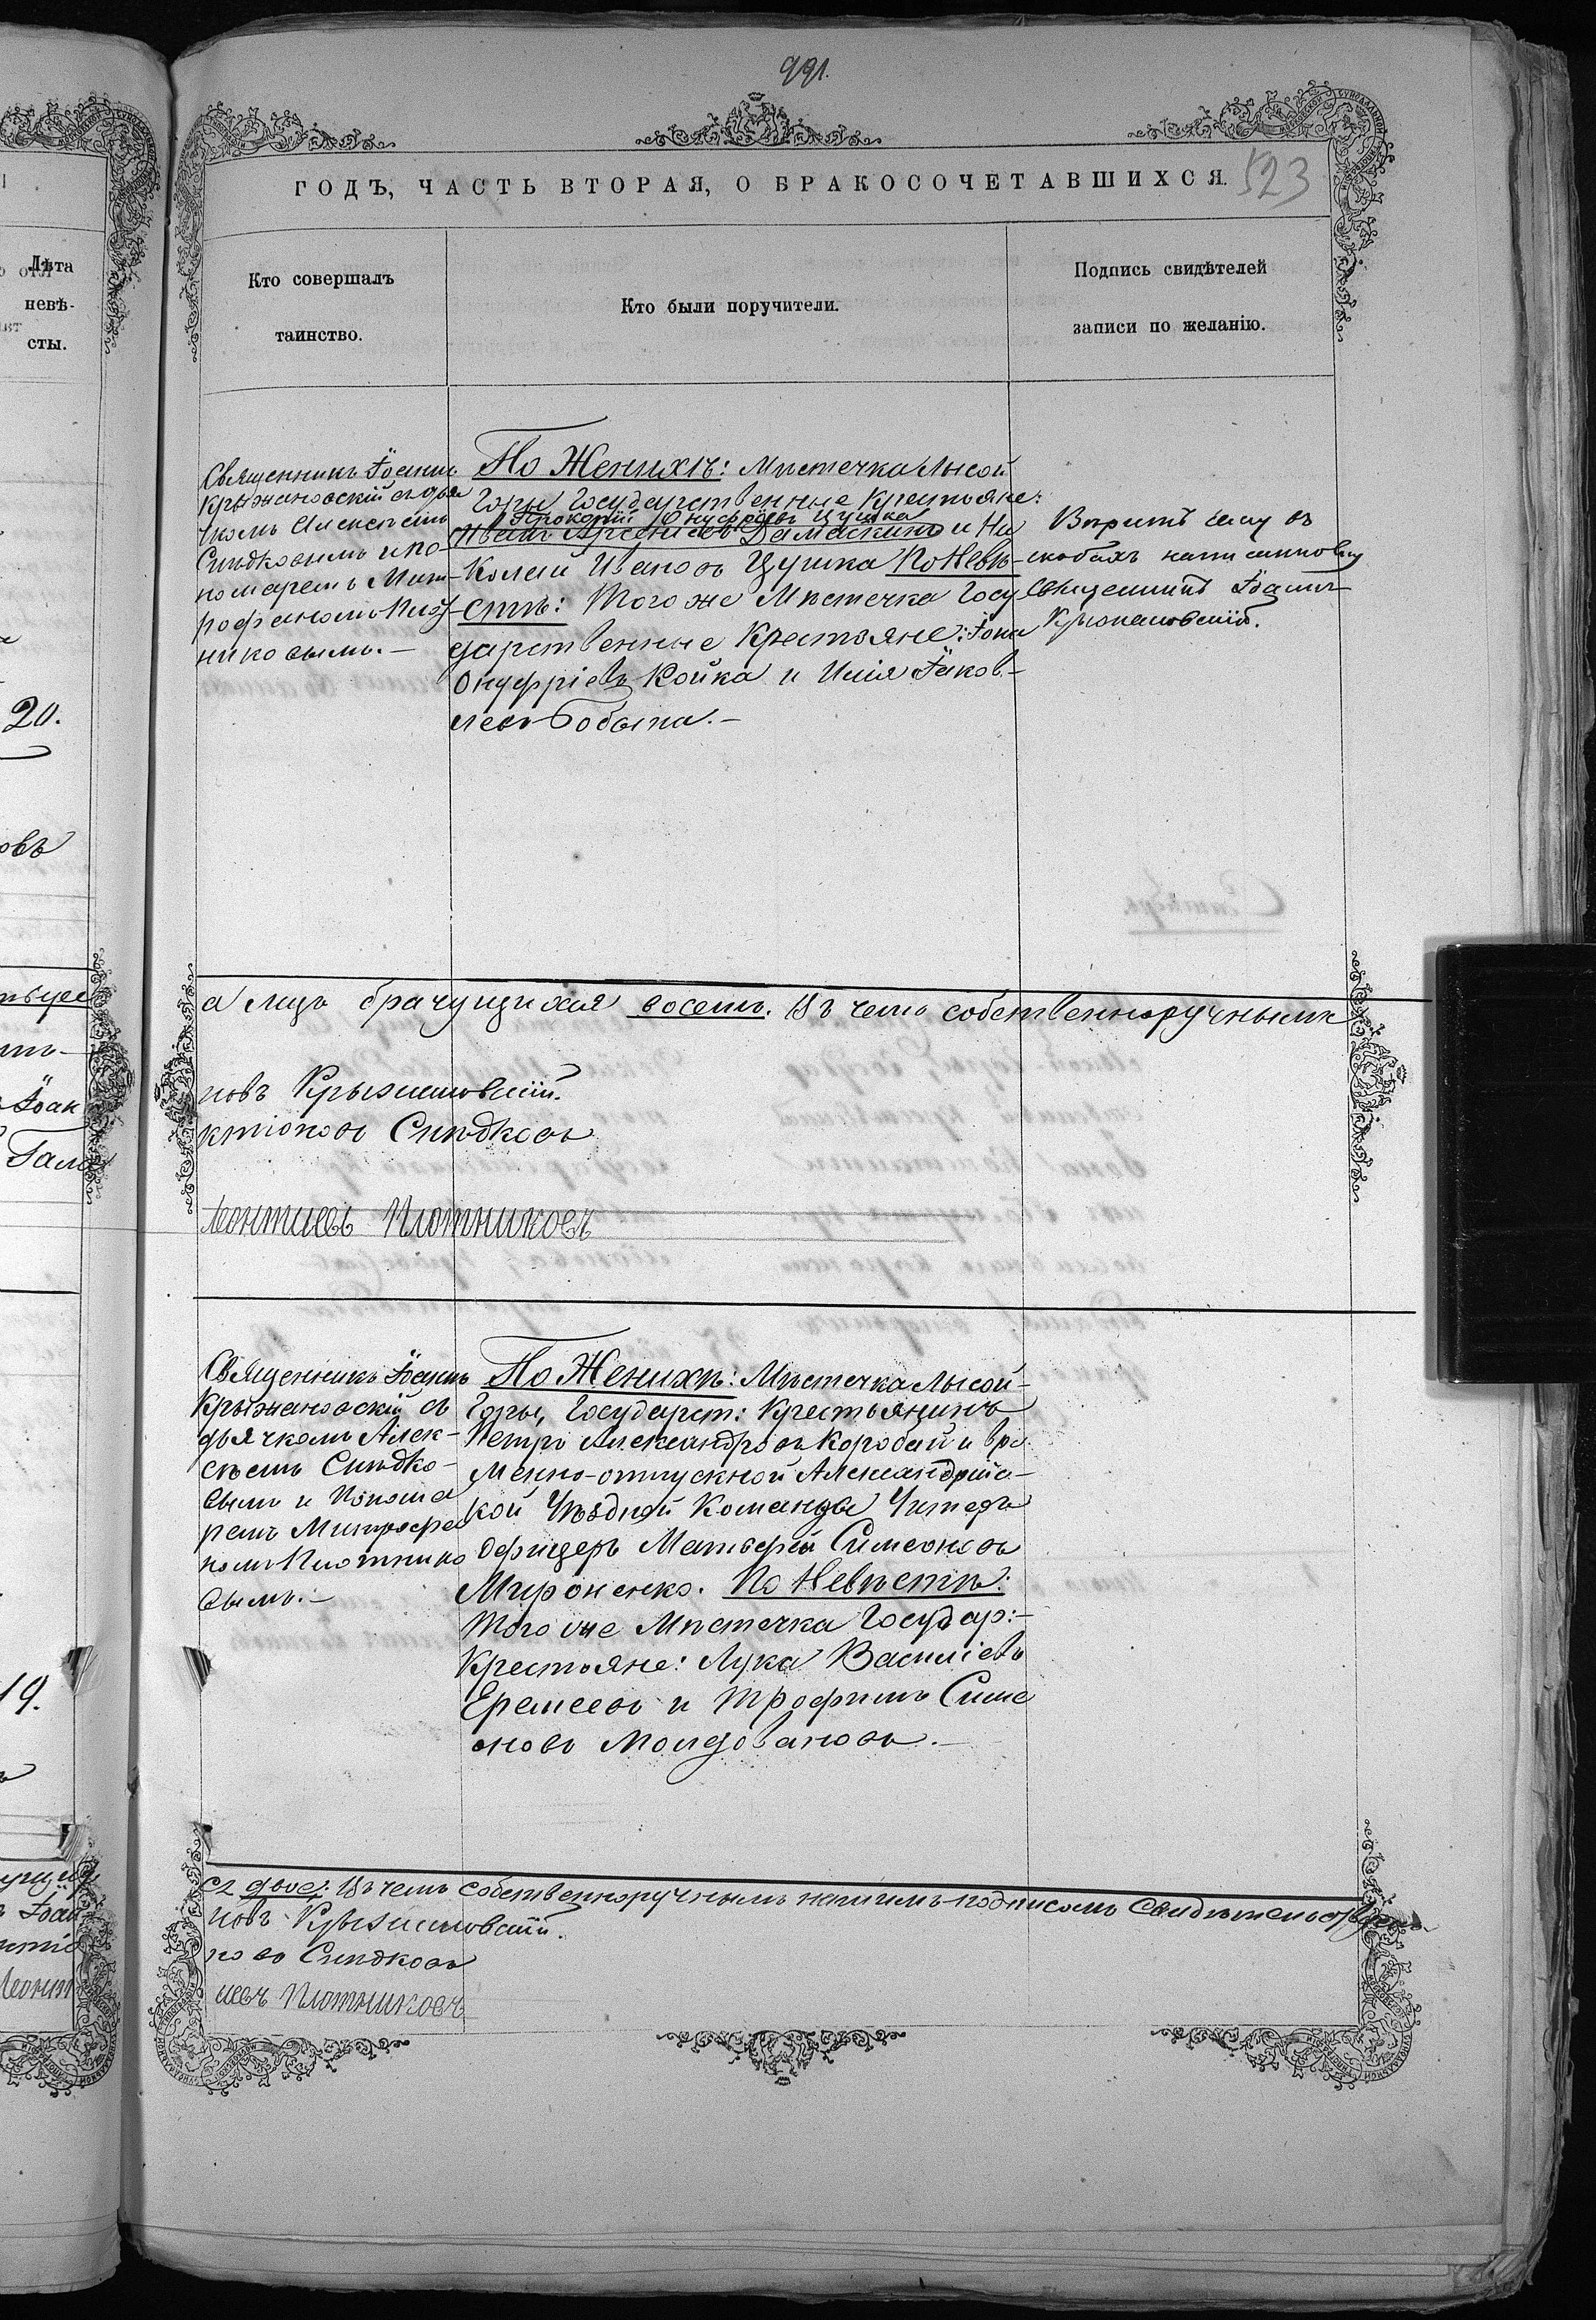 991.
523
ГОДЪ, ЧАСТЬ ВТОРАЯ, О БРАКОСОЧЕТАВШИХСЯ.
Лѣта
невѣ-
сты.
Кто совершалъ
таинство.
Кто были поручители.
Подпись свидѣтелей
записи по желанію.
20.
овъ
Іоан
Гала
19.
Священникъ Іоаннъ
Крыжановскій съ дья
чкомъ Алексѣемъ
Сѣдковымъ и по-
номаремъ Мит-
рофаномъ Плот-
никовымъ.-
По Женихѣ: Мѣстечка Лысой
Горы Государственные Крестьяне:
Прокопій Онуфріевъ Цушка
Иванъ Арсеніевъ Дамаскинъ и Ни
колай Ивановъ Цушка По Невѣ-
стѣ: Того же Мѣстечка Госу
дарственные Крестьяне: Іона
Онуфріевъ Койка и Илія Іаков-
левъ Бобына.-
Вѣрить сему въ
скобахъ написанному
Священникъ Іоаннъ
Крыжановскій.
а лицъ брачущихся восемь. Въ чемъ собственноручными
новъ Крыжановскій.
ктіоновъ Сѣдковъ
Леонтиевъ Плотниковъ
Священникъ Іоаннъ
Крыжановскій съ
дьячкомъ Алек-
сѣемъ Сѣдко-
вымъ и Понома
ремъ Митрофа
номъ Плотнико
вымъ.-
По Женихѣ: Мѣстечка Лысой-
Горы, Государст: Крестьянинъ
Петръ Александровъ Коробай и вре
менно-отпускной Александрійс-
кой Уѣздной Команды Унтеръ
Офицеръ Матвѣй Симеоновъ
Мироненко. По Невѣстѣ:
Того же Мѣстечка Государ:-
Крестьяне: Лука Василіевъ
Еремеевъ и Трофимъ Симе
оновъ Молдовановъ.-
ся двое. Въ чемъ собственноручнымъ нашимъ подписомъ свидѣтельствуемъ
новъ Крыжановскій.
новъ Сѣдковъ
іевъ Плотниковъ